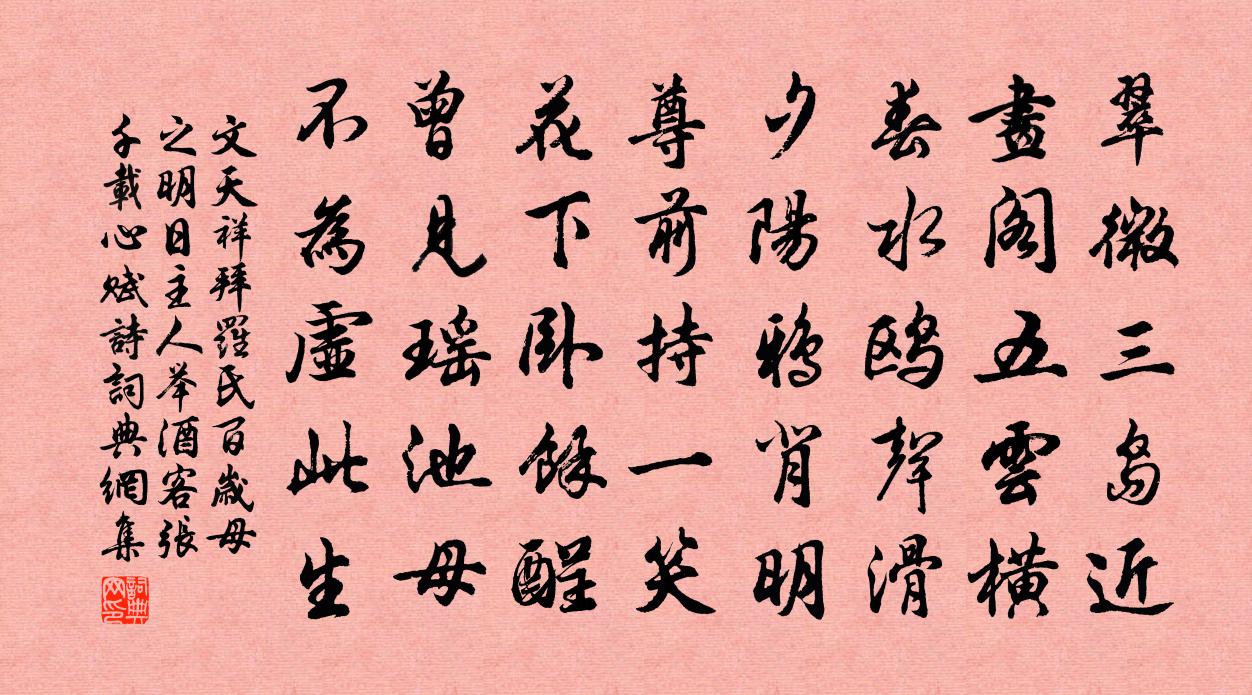 翠微三島近
畫閣五雲橫
春水鷗聲滑
夕陽鴉背明
尊前持一笑
花下卧餘酲
曾見瑶池母
不為虛此生
文天祥拜羅氏百歲母
之明日主人举酒客張
千載心賦詩詞典網集
詞典網印